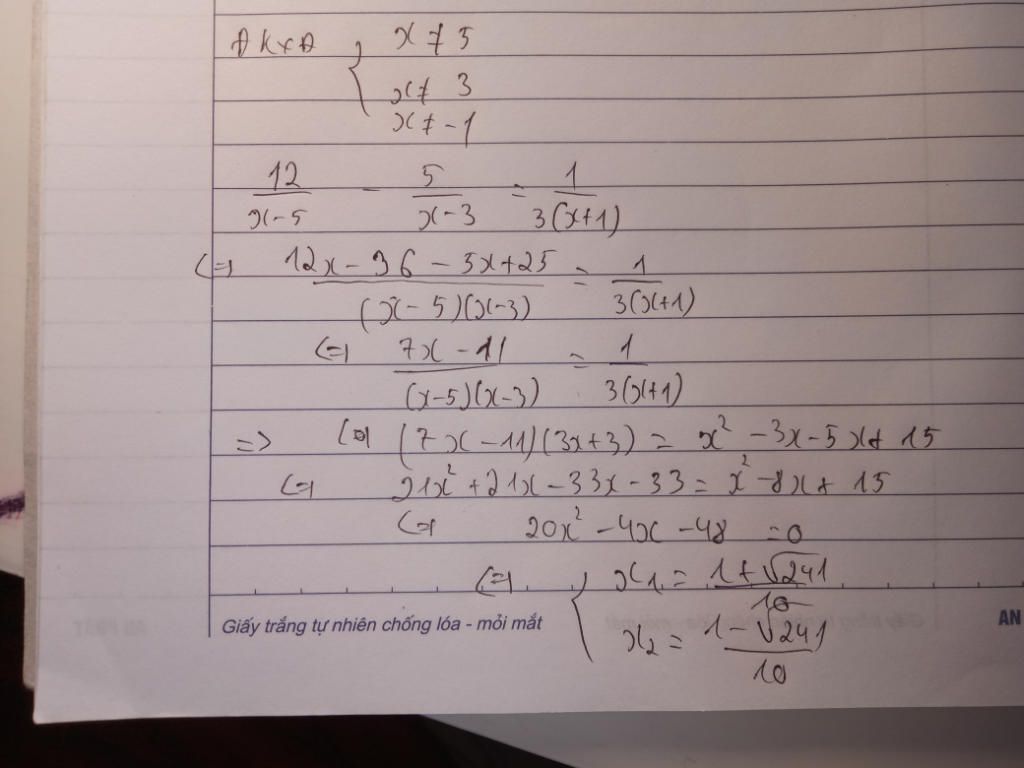 ĐKXĐ { x ≠ 5
x ≠ 3
x ≠ -1
12/(x-5) - 5/(x-3) = 1/(3(x+1))
<=> (12x - 36 - 5x + 25)/((x-5)(x-3)) = 1/(3(x+1))
<=> (7x - 11)/((x-5)(x-3)) = 1/(3(x+1))
=> (7x - 11)(3x+3) = x² - 3x - 5x + 15
<=> 21x² + 21x - 33x - 33 = x² - 8x + 15
<=> 20x² - 4x - 48 = 0
<=> { x₁ = (1+√241)/10
x₂ = (1-√241)/10
Giấy trắng tự nhiên chống lóa - mỏi mắt
AN